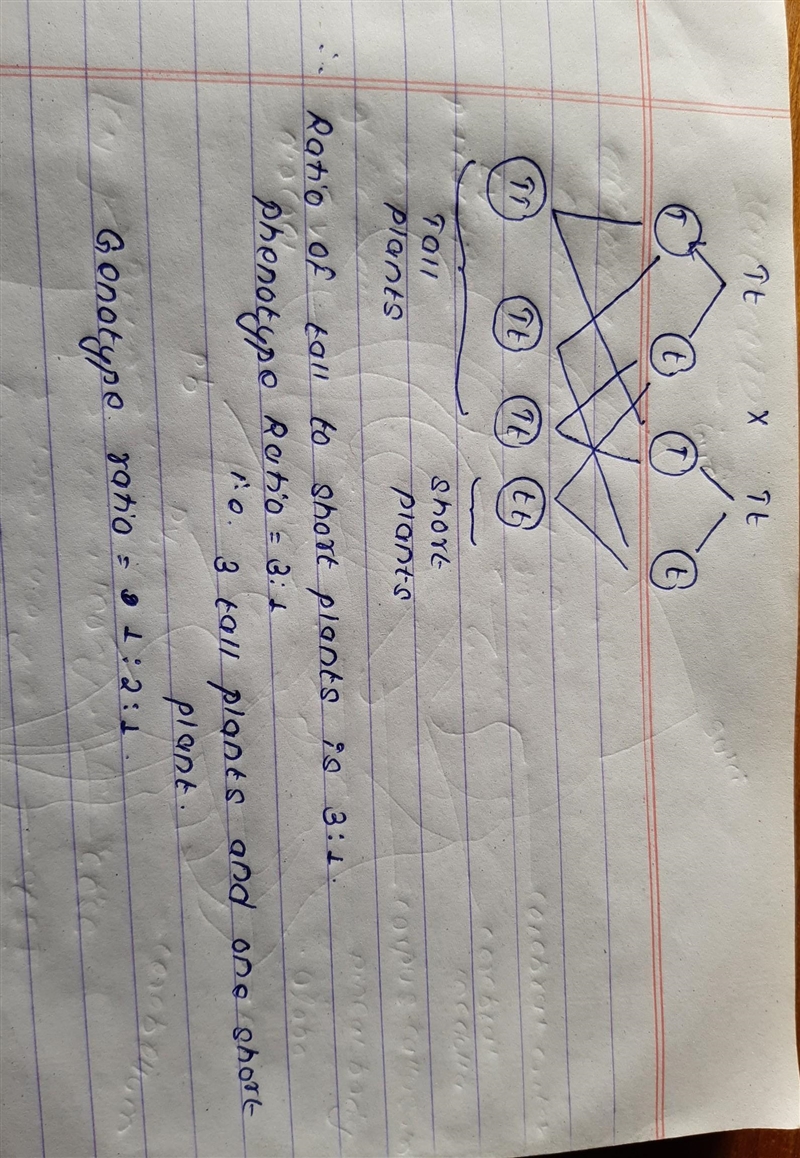 Tt x Tt
T t T t
TT Tt Tt tt
Tall short
plants plants
∴ Ratio of tall to short plants is 3:1.
phenotype Ratio = 3:1
i.e. 3 tall plants and one short
plant.
Genotype ratio = 1:2:1.